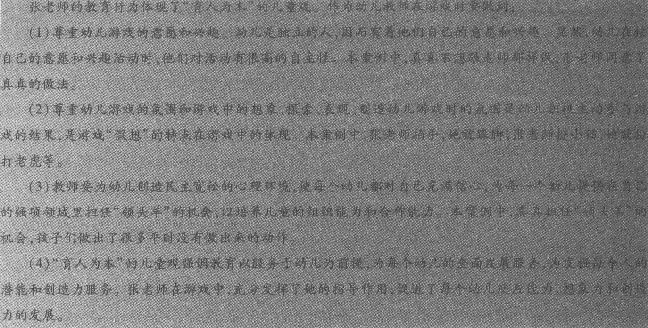 张老师的教育行为体现了“育人为本”的儿童观。作为幼儿教师在游戏时要做到:
(1)尊重幼儿游戏的意愿和兴趣。幼儿是独立的人,因而有着他们自己的意愿和兴趣。
自己的意愿和兴趣活动时,他们对活动有很高的自主性。本案例中,真真
真真的做法。
(2)尊重幼儿游戏的氛围和游戏中的想象、探索、表现、
戏的结果,是游戏“假想”的特点在游戏中的体现。本案例中,张老师
打老虎等。
(3)教师要为幼儿创造民主宽松的心理环境,使每个幼儿都对自己充满信心,为每一个幼儿提供在自己
的强项领域里担任“领头羊”的机会,以培养儿童的组织能力和合作能力。本案例中,真真担任“领头羊”的
机会,孩子们做出了很多平时没有做出来的动作。
(4)“育人为本”的儿童观强调教育以服务于幼儿为前提,为每个幼儿的全面发展服务,为发挥每个人的
潜能和创造力服务。张老师在游戏中,充分发挥了她的指导作用,促进了每个幼儿的
力的发展。